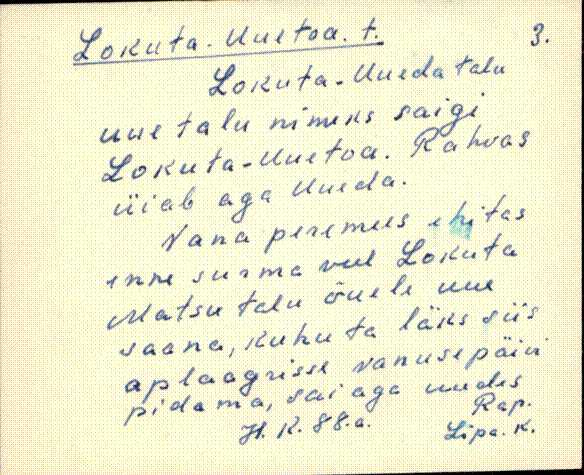 Lokuta-Uuetoa. t. 3.
Lokuta-Uueda talu
uue talu nimeks saigi
Lokuta-Uuetoa. Rahvas
üiab aga Uueda.
Vana peremees ehitas
enne surma veel Lokuta
Matsu talu õuele uue
saana, kuhu ta läks siis
aplaagrisse vanusepäivi
pidama, sai aga uudes
H. K. 88.a. Rap.
Lipa. K.